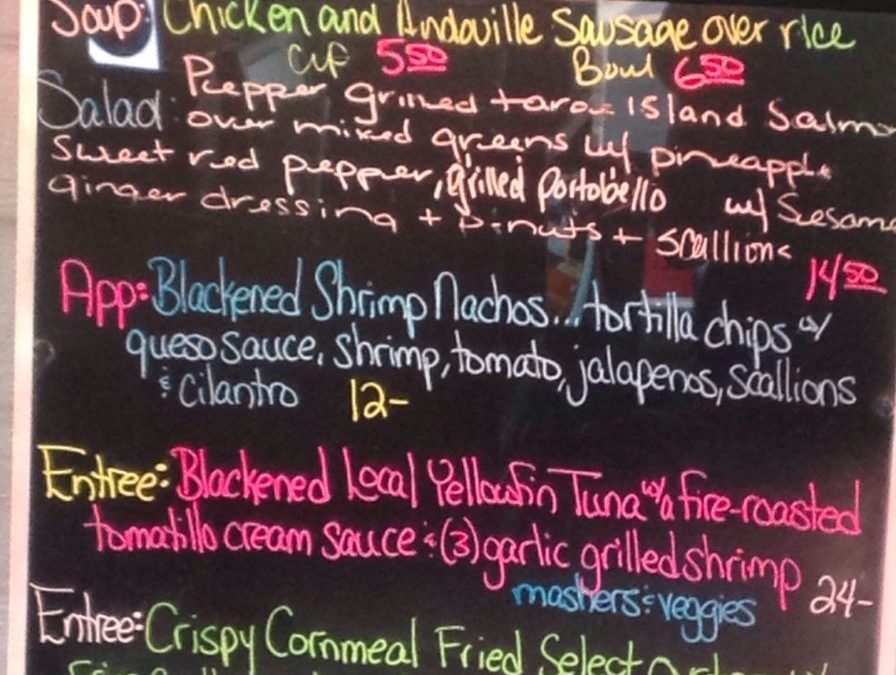 Soup: Chicken and Andouille Sausage over rice
Cup 5.50 Bowl 6.50
Salad: Pepper grilled taron island Salmon
over mixed greens w/ pineapple
sweet red pepper, grilled portobello w/ Seesame
ginger dressing + P-nuts + Scallions
14.50
App: Blackened Shrimp Nachos... tortilla chips w/
queso sauce, shrimp, tomato, jalapenos, scallions
& Cilantro 12-
Entree: Blackened Local Yellowfin Tuna w/a fire-roasted
tomatillo cream sauce & (3) garlic grilled shrimp
mashers & veggies 24-
Entree: Crispy Cornmeal Fried Select